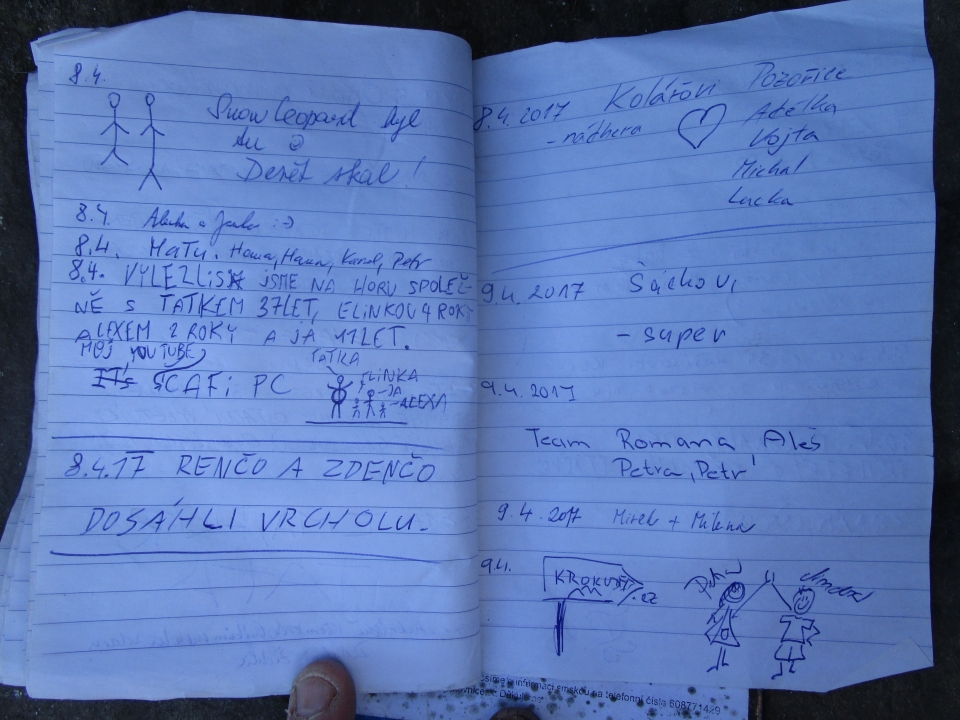 8.4.
Snow Leopard byl
tu
Deset skal!
8.4.
8.4. MaTy. Hana, Hana, Karel, Petr
8.4. VYLEZLI JSME NA HORU SPOLEČ-
NĚ S TAŤKEM 37LET, ELINKOU 4 ROKY
ALEXEM 2 ROKY A JÁ 11LET.
MŮJ YOUTUBE
ŠCAFi PC
TAŤKA
ELINKA
JA
ALEXA
8.4.17 RENČO A ZDENČO
DOSÁHLI VRCHOLU.
8.4.2017 Kolářovi Pozořice
- nádhera
Adélka
Vojta
Michal
Lucka
9.4.2017 Šáchovi
- super
9.4.2017
Team Romana Aleš
Petra, Petr
9.4.2017 Mirek + Milena
9.4.
.cz
informací
na telefonní čísla 608771429